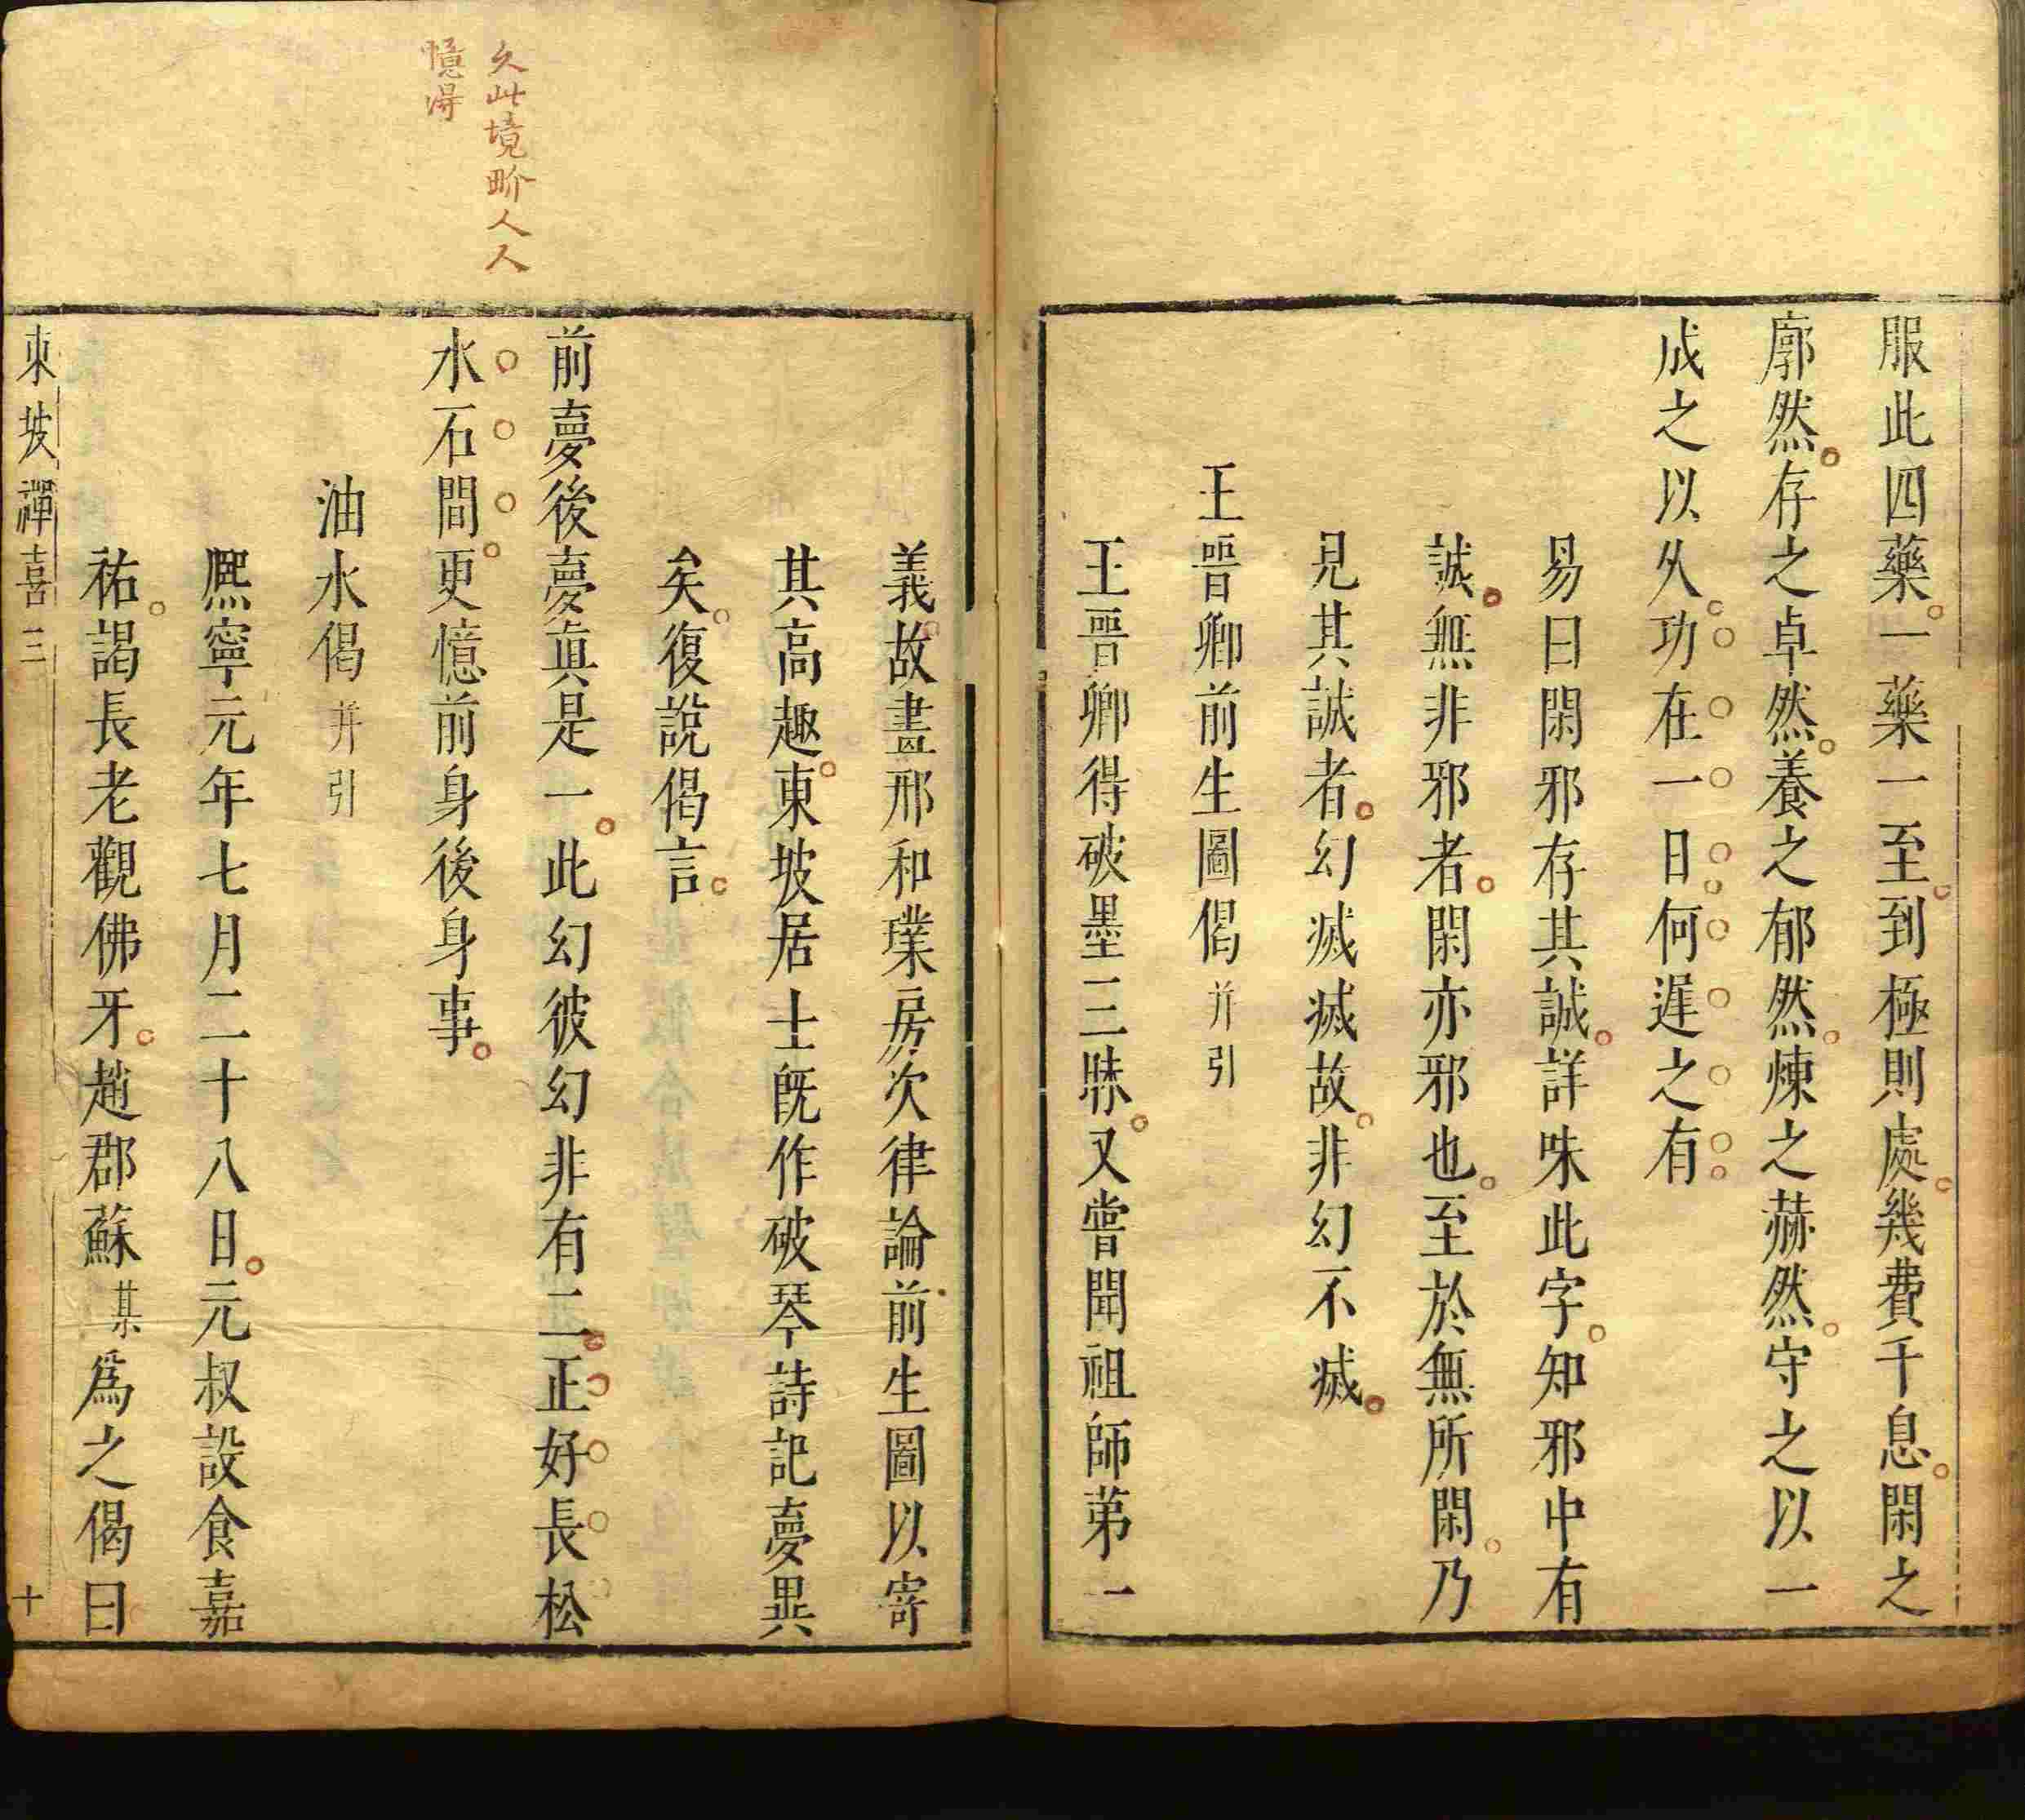 服此四藥一藥一至到極則處幾費千息閑之
廓然存之卓然養之郁然煉之赫然守之以一
成之以久功在一日何遲之有
易曰閑邪存其誠詳味此字知邪中有
誠無非邪者閑亦邪也至於無所閑乃
見其誠者幻滅滅故非幻不滅
王晉卿前生圖偈并引
王晉卿得破墨三昧又嘗聞祖師第一
義故畫邢和璞房次律論前生圖以寄
其高趣東坡居士既作破琴詩記夢異
矣復說偈言
前夢後夢真是一此幻彼幻非有二正好長松
水石間更憶前身後身事
油水偈并引
熈寧元年七月二十八日元叔設食嘉
祐謁長老觀佛牙趙郡蘇某爲之偈曰
東坡禪喜三
十
久此境界人人
憶得